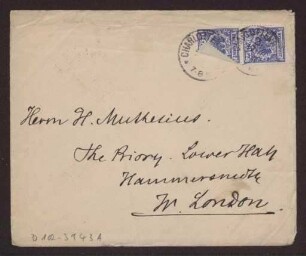 CHARLO
7.8
Herrn H. Muthesius.
The Priory. Lower Mall
Hammersmith
W. London.
D 102-3943A